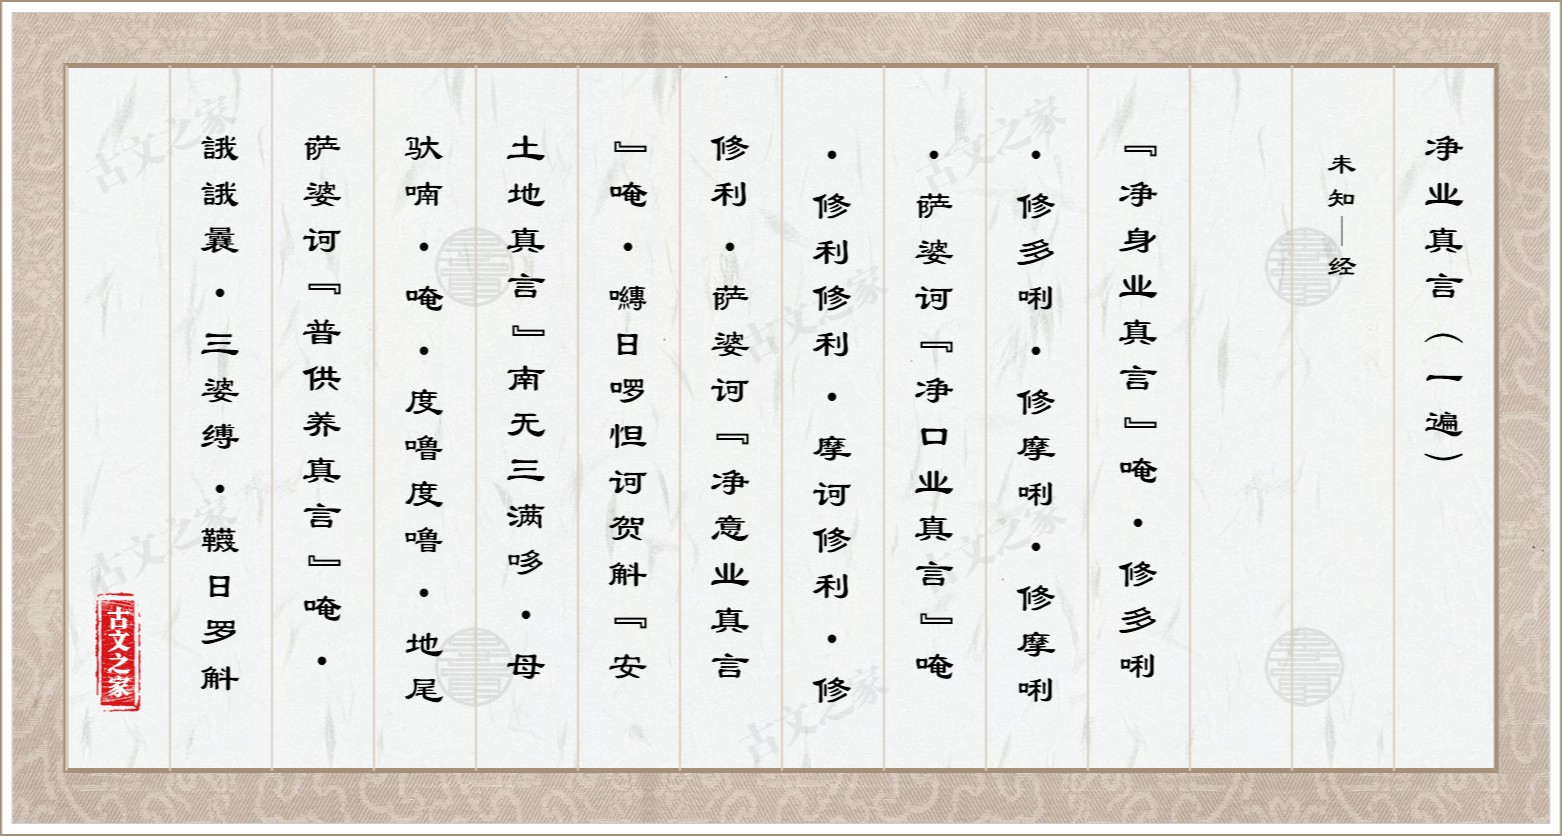 净业真言（一遍）
未知—经
『净身业真言』唵·修多唎
·修多唎·修摩唎·修摩唎
·萨婆诃『净口业真言』唵
·修利修利·摩诃修利·修
修利·萨婆诃『净意业真言
』唵·嚩日啰怛诃贺斛『安
土地真言』南无三满哆·母
驮喃·唵·度噜度噜·地尾
萨婆诃『普供养真言』唵·
誐誐曩·三婆缚·韈日罗斛
古文之家